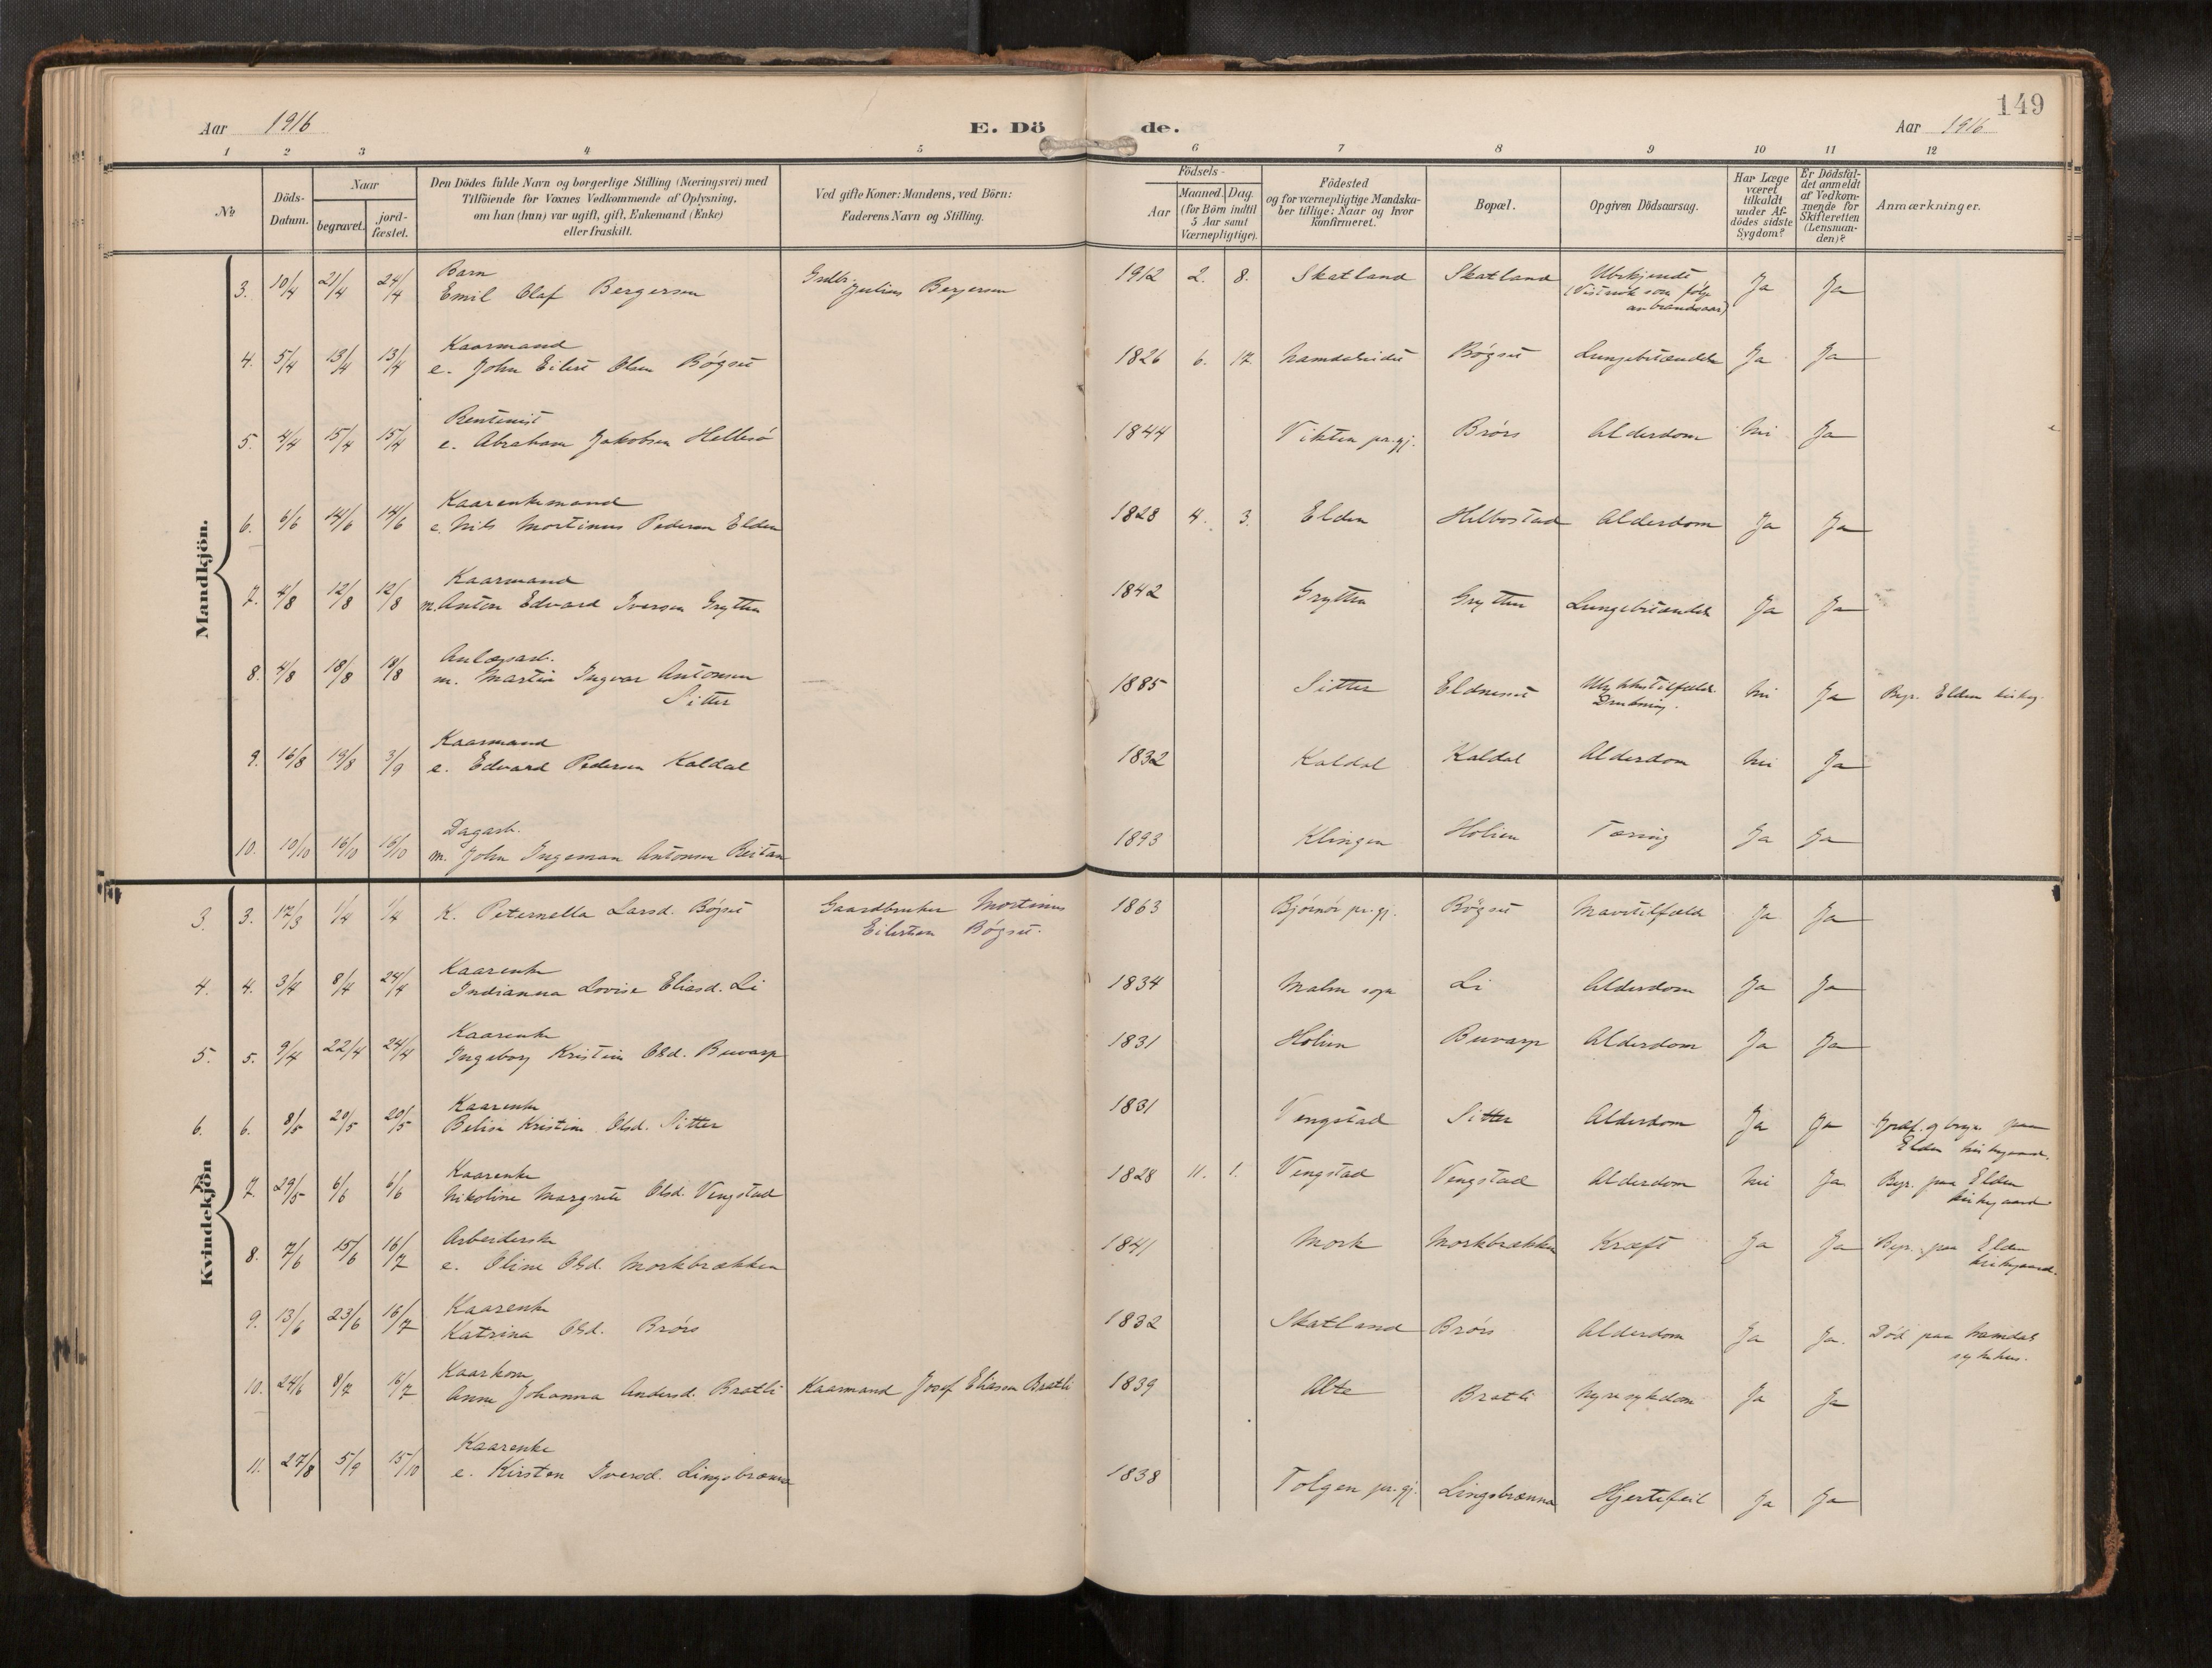 149
Aar 1916
E. Dö de.
Aar 1916
1 2 3 4 5 6 7 8 9 10 11 12
No
Döds-Datum.
Naar
begravet.
jord-fæstet.
Den Dödes fulde Navn og borgerlige Stilling (Næringsvei) med
Tilföiende for Voxnes Vedkommende af Oplysning,
om han (hun) var ugift, gift, Enkemand (Enke)
eller fraskilt.
Ved gifte Koner: Mandens, ved Börn:
Faderens Navn og Stilling.
Födsels-
Aar
Maaned. Dag.
(for Börn indtil
5 Aar samt
Værnepligtige).
Födested
og for værnepligtige Mandska-
ber tillige: Naar og hvor
konfirmeret.
Bopæl.
Opgiven Dödsaarsag.
Har Læge
været
tilkaldt
under Af-
dödes sidste
Sygdom?
Er Dödsfal-
det anmeldt
af Vedkom-
mende for
Skifteretten
(Lensman-
den)?
Anmærkninger.
Mandkjön.
Barn
3. 10/4 21/4 24/4 Emil Olaf Bergersen Julius Bergersen 1912 2. 8. Skatland Skatland Ubekjendt Ja Ja
(Vistnok som følge
av brandsaar)
Kaarmand
4. 5/4 13/4 13/4 e. John Eilert Olsen Bøgset 1826 6. 17. Namdalseidet Bøgset Lungebetændelse Ja Ja
Rentenist
5. 4/4 15/4 15/4 e. Abraham Jakobsen Hellesø 1844 Vikten pr.gj. Brörs Alderdom Nei Ja
Kaarenkemand
6. 6/6 14/6 14/6 e. Nils Mortinus Pedersen Elden 1828 4. 3. Elden Helbostad Alderdom Ja Ja
Kaarmand
7. 4/8 12/8 12/8 m. Anton Edvard Iversen Grytten 1842 Grytten Grytten Lungebetændelse Ja Ja
Anlægsarb.
8. 4/8 18/8 18/8 m. Martin Ingvar Antonsen 1885 Sitter Eldneset Ulykkestilfælde Nei Ja Begr. Elden kirkeg.
Sitter Drukning.
Kaarmand
9. 16/8 19/8 3/9 e. Edvard Pedersen Kaldal 1832 Kaldal Kaldal Alderdom Nei Ja
Dagarb.
10. 10/10 16/10 16/10 m. John Ingeman Antonsen Reitan 1893 Klingen Holien Tæring Ja Ja
Kvindekjön
3. 3. 17/3 1/4 1/4 K. Peternella Larsd. Bøgset Gaardbruker Mortinus 1863 Bjørnør pr.gj. Bøgset Mavetilfælde Ja Ja
Eilertsen Bøgset.
Kaarenke
4. 4. 3/4 8/4 24/4 Indianna Lovise Eliasd. Li 1834 Malm sogn Li Alderdom Ja Ja
Kaarenke
5. 5. 9/4 22/4 24/4 Ingeborg Kristine Olsd. Buvarp 1831 Holien Buvarp Alderdom Ja Ja
Kaarenke
6. 6. 8/5 20/5 20/5 Belisa Kristine Olsd. Sitter 1831 Vengstad Sitter Alderdom Ja Ja Jordf. og begr. paa
Elden kirkegaard.
Kaarenke
7. 7. 29/5 6/6 6/6 Nikoline Margrete Olsd. Vengstad 1828 11. 1. Vengstad Vengstad Alderdom Nei Ja Begr. paa Elden
kirkegaard
Arbeiderske
8. 7/6 15/6 16/7 e. Oline Olsd. Morkbrækken 1841 Mork Morkbrækken Kræft Ja Ja Begr. paa Elden
kirkegaard.
Kaarenke
9. 13/6 23/6 16/7 Katrina Olsd. Brörs 1832 Skatland Brörs Alderdom Ja Ja. Död paa Namdal
sykehus.
Kaarkone
10. 24/6 8/7 16/7 Anne Johanna Andersd. Bratli Kaarmand Josef Eliasen Bratli 1839 Alte Bratli Nyresykdom Ja Ja
Kaarenke
11. 27/8 5/9 15/10 e. Kirsten Iversd. Lingsbrænna 1838 Tolgen pr.gj. Lingsbrænna Hjertefeil Ja Ja